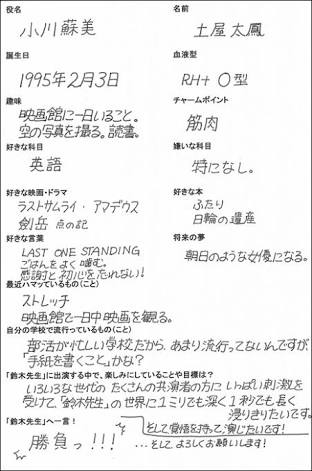 役名
名前
小川蘇美
土屋太鳳
誕生日
血液型
1995年2月3日
RH+ O型
趣味
チャームポイント
映画館に一日いること。
空の写真を撮る。読書。
筋肉
好きな科目
嫌いな科目
英語
特になし。
好きな映画・ドラマ
好きな本
ラストサムライ・アマデウス
劔岳 点の記
ふたり
日輪の遺産
好きな言葉
将来の夢
LAST ONE STANDING
ごはんをよく噛む。
感謝と初心を忘れない!
朝日のような女優になる。
最近ハマッているもの(こと)
ストレッチ
映画館で一日中映画を観る。
自分の学校で流行っているもの(こと)
部活が忙しい学校だから、あまり流行ってないんですが、
「手紙を書くこと」かな?
「鈴木先生」に出演する中で、楽しみにしていることや目標は?
いろいろな世代のたくさんの共演者の方にいっぱい刺激を
受けて、「鈴木先生」の世界に1ミリでも深く1秒でも長く
浸りきりたいです。
「鈴木先生」へ一言!
そして覚悟を持って演じたいです!
勝負っ!!!
...そして、よろしくお願いします!